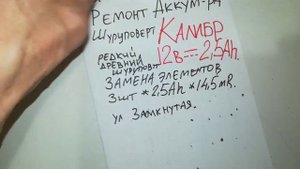 Ремонт Аккум-ра
Шуруповёрт Калибр
редкий
древний
шуруповёрт
12в=2,5Ah.
Замена элементов
3шт * 2,5Ah * 14,5mR.
ул Замкнутая.